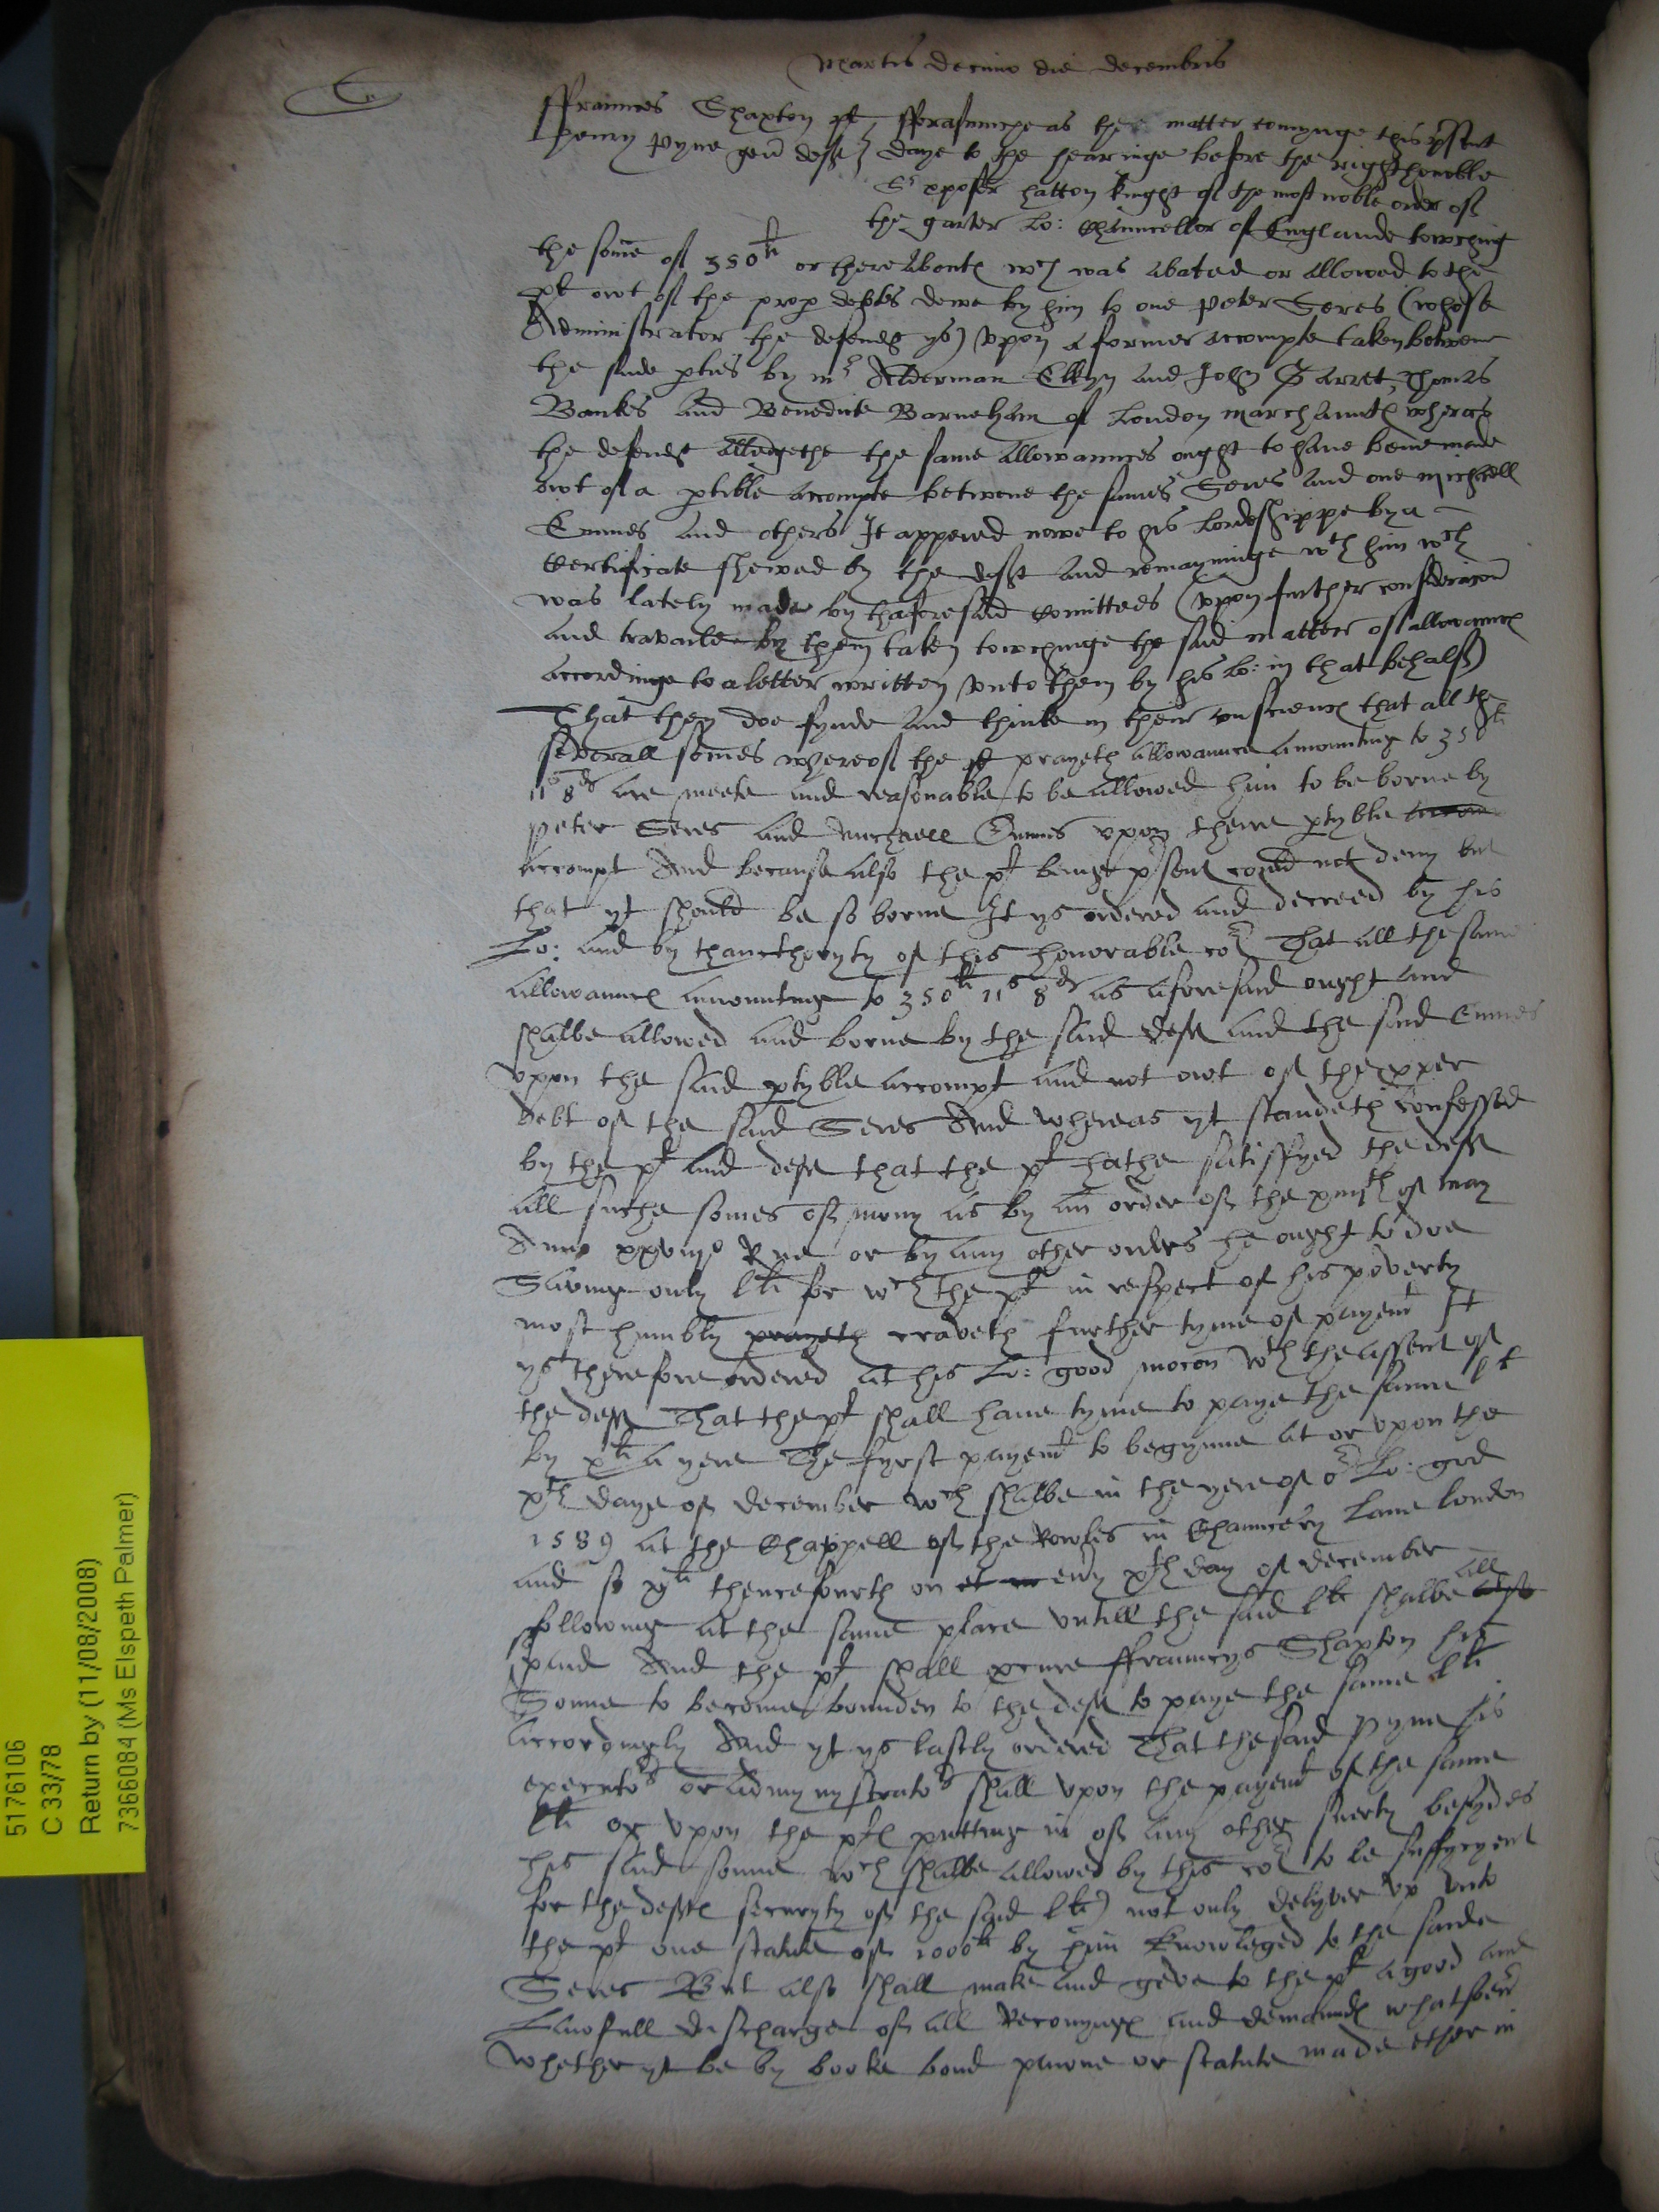 Martis decimo die decembris
ffraunces Shaxton plt fforasmuche as the matter comynge this psent
Henry Pyne gen deft daye to the hearinge before the right honoble
Sr xpofer hatton knight of the most noble order of
the garter Lo: Chauncellor of Englande towching
the some of 350li or there aboute wch was abated or allowed to the
plt owt of the proper debtes dewe by him to one Peter Seres (whose
Administrator the defendt ys) vpon a former accompte taken betwene
the saide pties by mr Alderman Elkyn and John Barret, Thomas
Bankes and Benedicte Barneham of London marchaunts wheras
the defendt alledgethe the same allowaunces ought to haue bene made
owt of a ptible accompte betwene the same Seres and one Michaell
Ennes and others It appered nowe to his Lordeshippe by a
Certificate shewed by the deft and remayninge wth him wch
was lately made by thaforesaid Comittees (vpon further consideracon
and travaile by them taken towchinge the said matter of allowaunce
accordinge to a letter written vnto them by his Lo: in that behalf)
That they doe fynde and thinke in their conscience that all the
severall somes whereof the plt prayeth allowaunce amountinge to 350li
11s 8d are meete and reasonable to be allowed him to be borne by
Peter Seres and Michaell Ennes vpon theire ptyble
accompt And because also the plt beinge psent could not deny but
that yt should be so borne It ys ordered and decreed by his
Lo: and by thaucthoryty of this honorable cot That all the same
allowaunce amountinge to 350li 11s 8d as aforesaid ought and
shalbe allowed and borne by the said deft and the said Ennes
vpon the said ptyble accompt and not owt of the pper
debt of the said Seres And whereas yt standeth confessed
by the plt and deft that the plt hathe satisfyed the deft
all suche somes of mony as by an order of the xviijth of may
Anno xxviijo Rne or by any other orders he ought to doe
Saving only lli for wch the plt in respect of his poverty
most humbly prayeth craveth further tyme of payent It
ys therefore ordered at his Lo: good mocon wth the assent of
the deft That the plt shall haue tyme to paye the same lli
by xli a yere The fyrst payent to begynne at or vpon the
xth daye of December wch shalbe in the yere of or Lo: god
1589 at the Chappell of the Rowles in Chauncery Lane London
and so xli thencefourth on euy xth day of december
following at the same place vntill the said lli shalbe all
paid And the plt shall pcure ffrauncys Shaxton his
Sonne to become bounden to the deft to paye the same lli
accordingly And yt ys lastly ordered That the said Pyne his
executors or admynystrators shall vpon the payent of the same
lli or vpon the plts putting in of any other suerty besydes
his said sonne wch shalbe allowed by this cot to be suffycyent
for the defts securyty of the said lli) not only delyver vp vnto
the plt one statute of 1000li by him knowleged to the saide
Seres But also shall make and geve to the plt a good and
Lawfull discharge of all Reconyngs and demaunds whatsoeu
whether yt be by booke bond pawne or statute made ether in
5176106
C 33/78
Return by (11/08/2008)
7366084 (Ms Elspeth Palmer)